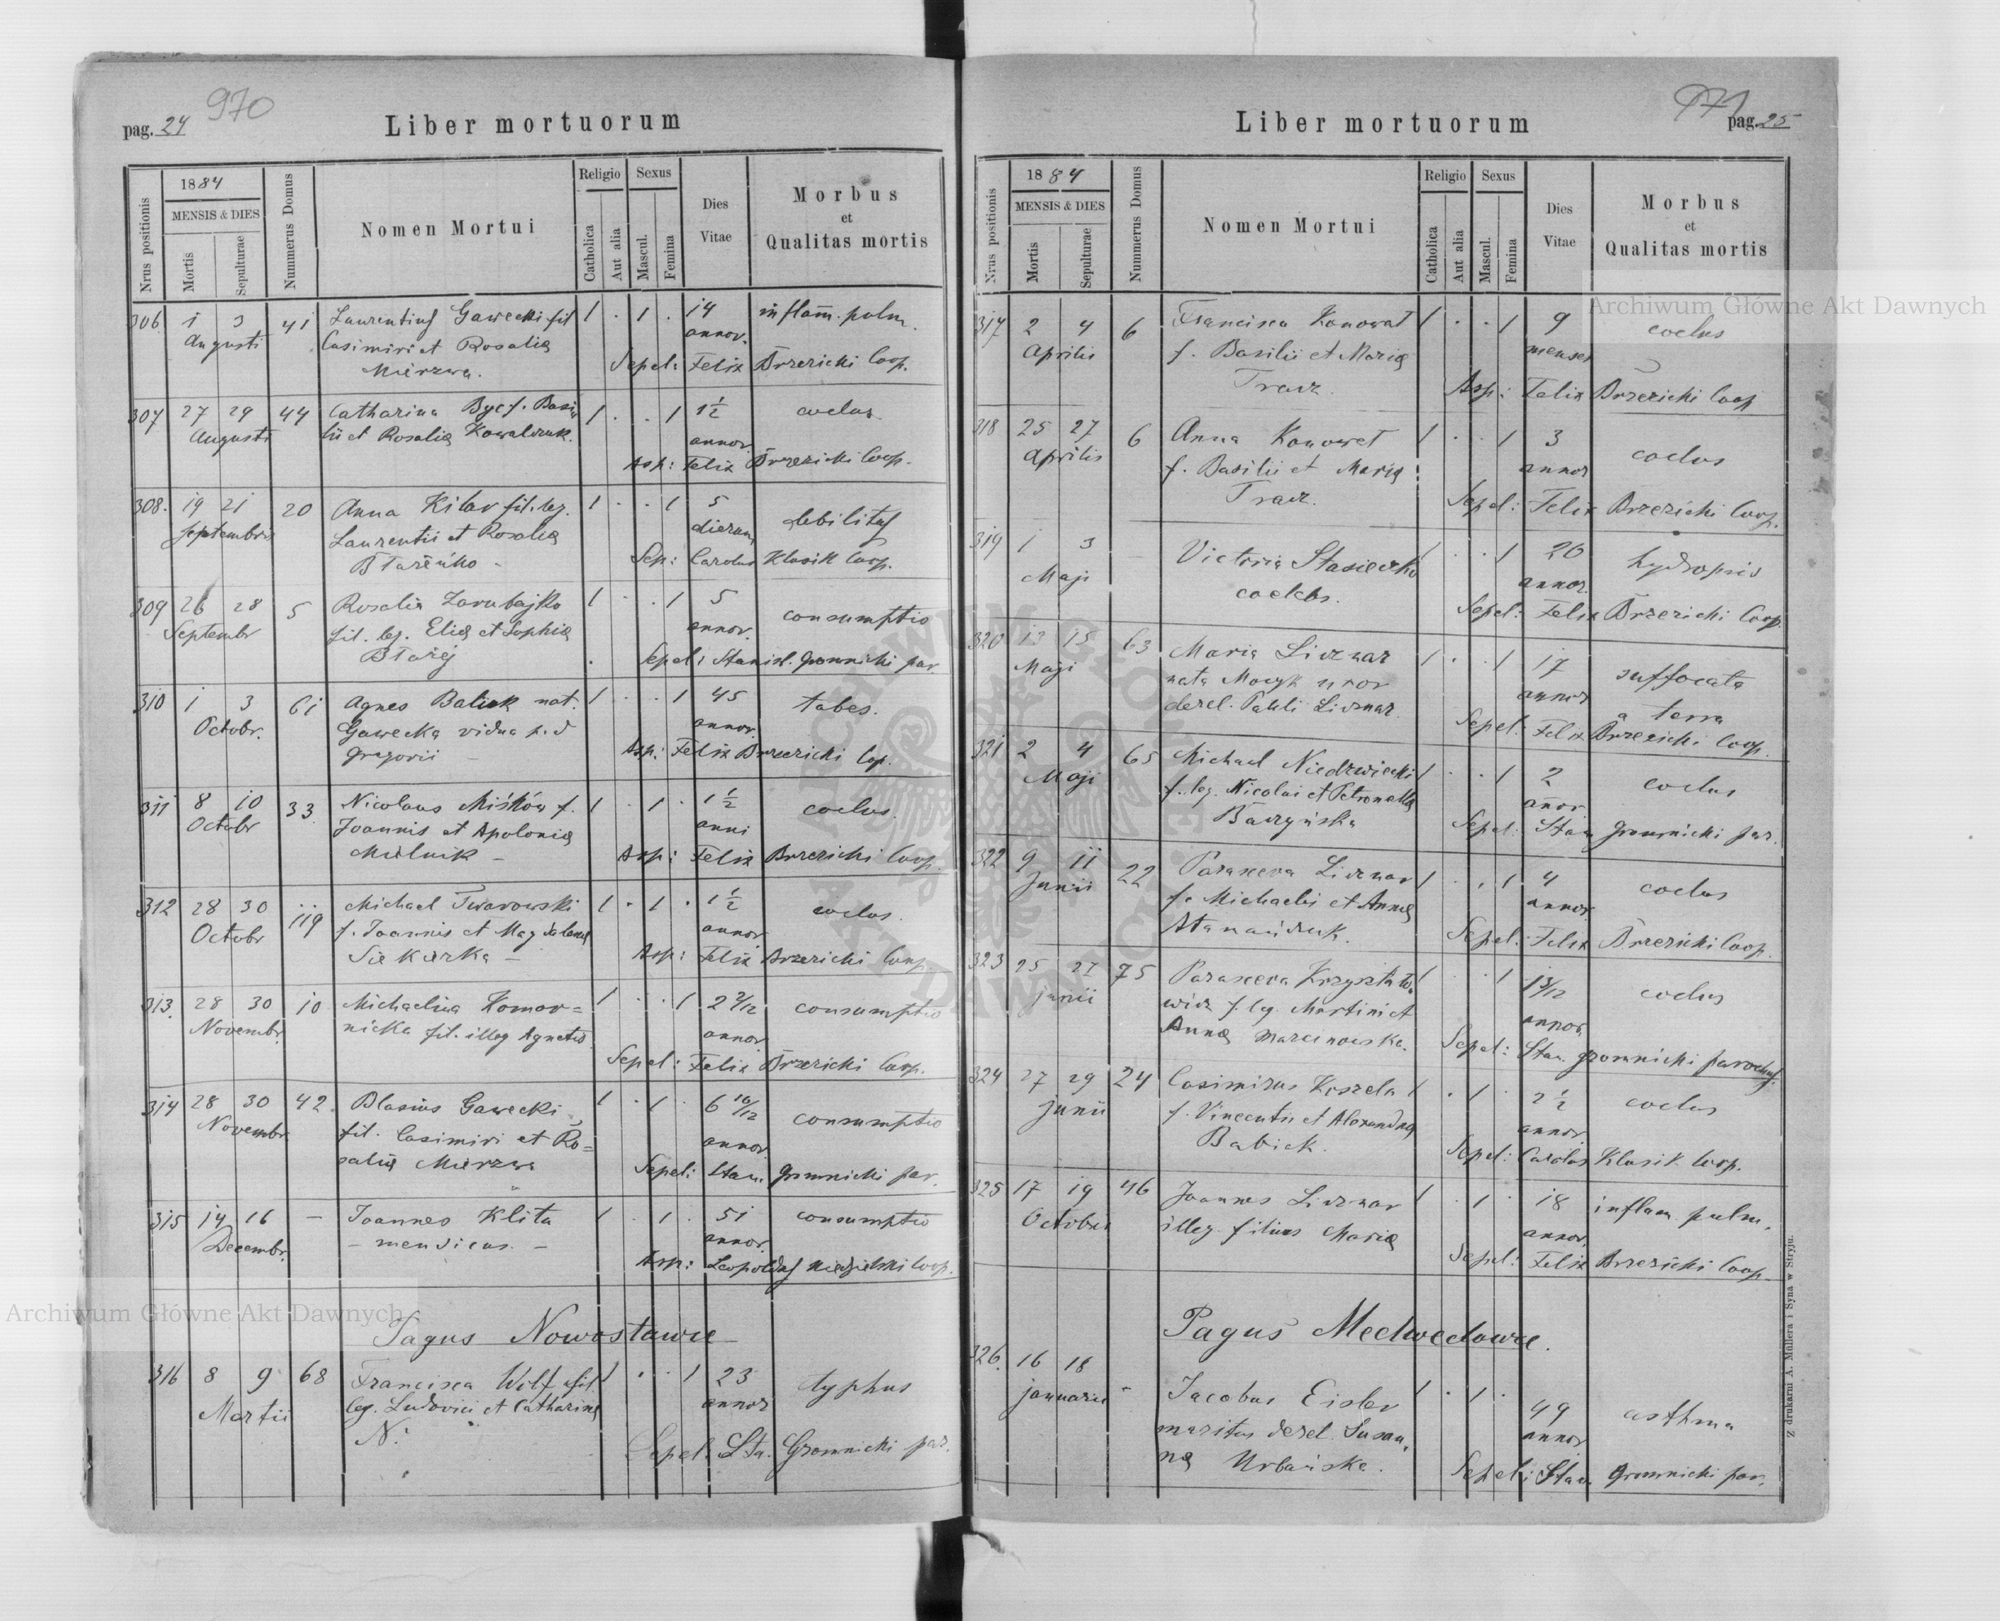 970
pag. 24
Liber mortuorum
Nrus positionis
1884
MENSIS & DIES
Mortis
Sepulturae
Nummerus Domus
Nomen Mortui
Religio
Catholica
Aut alia
Sexus
Mascul.
Femina
Dies
Vitae
Morbus
et
Qualitas mortis
306 1 3 41 Laurentius Gawecki fil 1 . 1 . 14 inflam. pulm.
Augusti Casimiri et Rosaliæ annor.
Mierzwa. Sepel: Felix Brzezicki Coop.
307 27 29 44 Catharina Byc f. Basi 1 . . 1 1½ coelus
Augusti lii et Rosaliæ Kowalczuk. annor.
Asp: Felix Brzezicki Coop.
308. 19 21 20 Anna Kilar fil. leg. 1 . . 1 5 debilitas
Septembris Laurentii et Rosaliæ dierum
Błażeńko - Sep: Carolus Klusik Coop.
309 26 28 5 Rosalia Zarubajko 1 . . 1 5 consumptio
Septembr fil. leg. Eliæ et Sophiæ annor.
Błażéj Sepel: Stanisl. Gromnicki par.
310 1 3 61 Agnes Baliuk nat. 1 . . 1 45 tabes.
Octobr. Gawecka vidua p. d annor.
Gregorii - Asp: Felix Brzezicki Cop.
311 8 10 33 Nicolaus Miśków f. 1 . 1 . 1½ coelus.
Octobr Joannis et Apoloniæ anni
Mielnik - Asp: Felix Brzezicki Coop.
312 28 30 119 Michael Twarowski 1 . 1 . 1½ coelus.
Octobr f. Joannis et Magdalenæ annor
Siekierka - Asp: Felix Brzezicki Coop
313. 28 30 10 Michaelina Komor= 1 . . 1 2 2/12 consumptio
Novembr. nicka fil. illeg Agnetis annor
Sepel: Felix Brzezicki Coop.
314 28 30 42. Blasius Gawecki 1 . 1 . 6 10/12 consumptio
Novembr. fil. Casimiri et Ro= annor.
saliæ Mierzwa Sepel: Stan. Gromnicki par.
315 14 16 - Joannes Klita 1 . 1 . 51 consumptio
Decembr. - mendicus. - annor.
Asp: Leopoldus Niedzielski Coop.
Pagus Nowostawce
316 8 9 68 Francisca Wilf fil. 1 . . 1 23 typhus
Martii leg. Ludovici et Catharinæ annor
N. Sepel. Sta. Gromnicki par.
971
pag. 25
Liber mortuorum
Nrus positionis
1884
MENSIS & DIES
Mortis
Sepulturae
Nummerus Domus
Nomen Mortui
Religio
Catholica
Aut alia
Sexus
Mascul.
Femina
Dies
Vitae
Morbus
et
Qualitas mortis
317 2 4 6 Francisca Konowat 1 . . 1 9 coelus
Aprilis f. Basilii et Mariæ menses
Tracz. Asp: Felix Brzezicki Coop
318 25 27 6 Anna Konowet 1 . . 1 3 coelus
Aprilis f. Basilii et Mariæ annor
Tracz. Sepel: Felix Brzezicki Coop.
319 1 3 Victoria Stasieczko 1 . . 1 20 hydropsis
Maji coelebs. annor.
Sepel: Felix Brzezicki Coop.
320 13 15 63 Maria Licznar 1 . . 1 17 suffocata
Maji nata Macyk uxor annor a terra
derel. Pauli Licznar. Sepel: Felix Brzezicki Coop.
321 2 4 65 Michael Niedzwiecki 1 . . 1 2 coelus
Maji f. leg. Nicolai et Petronellæ annor.
Baczyńska Sepel: Stan Gromnicki par.
322 9 11 22 Parasceva Licznar 1 . . 1 4 coelus
Junii f. Michaelis et Annæ annor.
Atamańczuk. Sepel: Felix Brzezicki Coop.
323 25 27 75 Parasceva Krzysztofo 1 . . 1 13/12 coelus
junii wicz f. leg. Martini et annor.
Annæ Marcinowska. Sepel: Stan. Gromnicki parochus.
324 27 29 24 Casimirus Koszela 1 . 1 . 2½ coelus
junii f. Vincentii et Alexandræ annor.
Babiek. Sepel: Carolus Klusik Coop.
325 17 19 46 Joannes Licznar 1 . 1 . 18 inflam. pulm.
Octobris illeg. filius Mariæ annor.
Sepel: Felix Brzezicki Coop.
Pagus Medwedowce.
326. 16 18 - Jacobus Eisler 1 . 1 . 49 asthma
januarii maritus derel. Susan, annor.
næ Urbańska. Sepel: Stan. Gromnicki par.
Z drukarni A. Müllera i Syna w Stryju.
Archiwum Główne Akt Dawnych
Archiwum Główne Akt Dawnych
ARCHIWUM GŁÓWNE AKT DAWNYCH